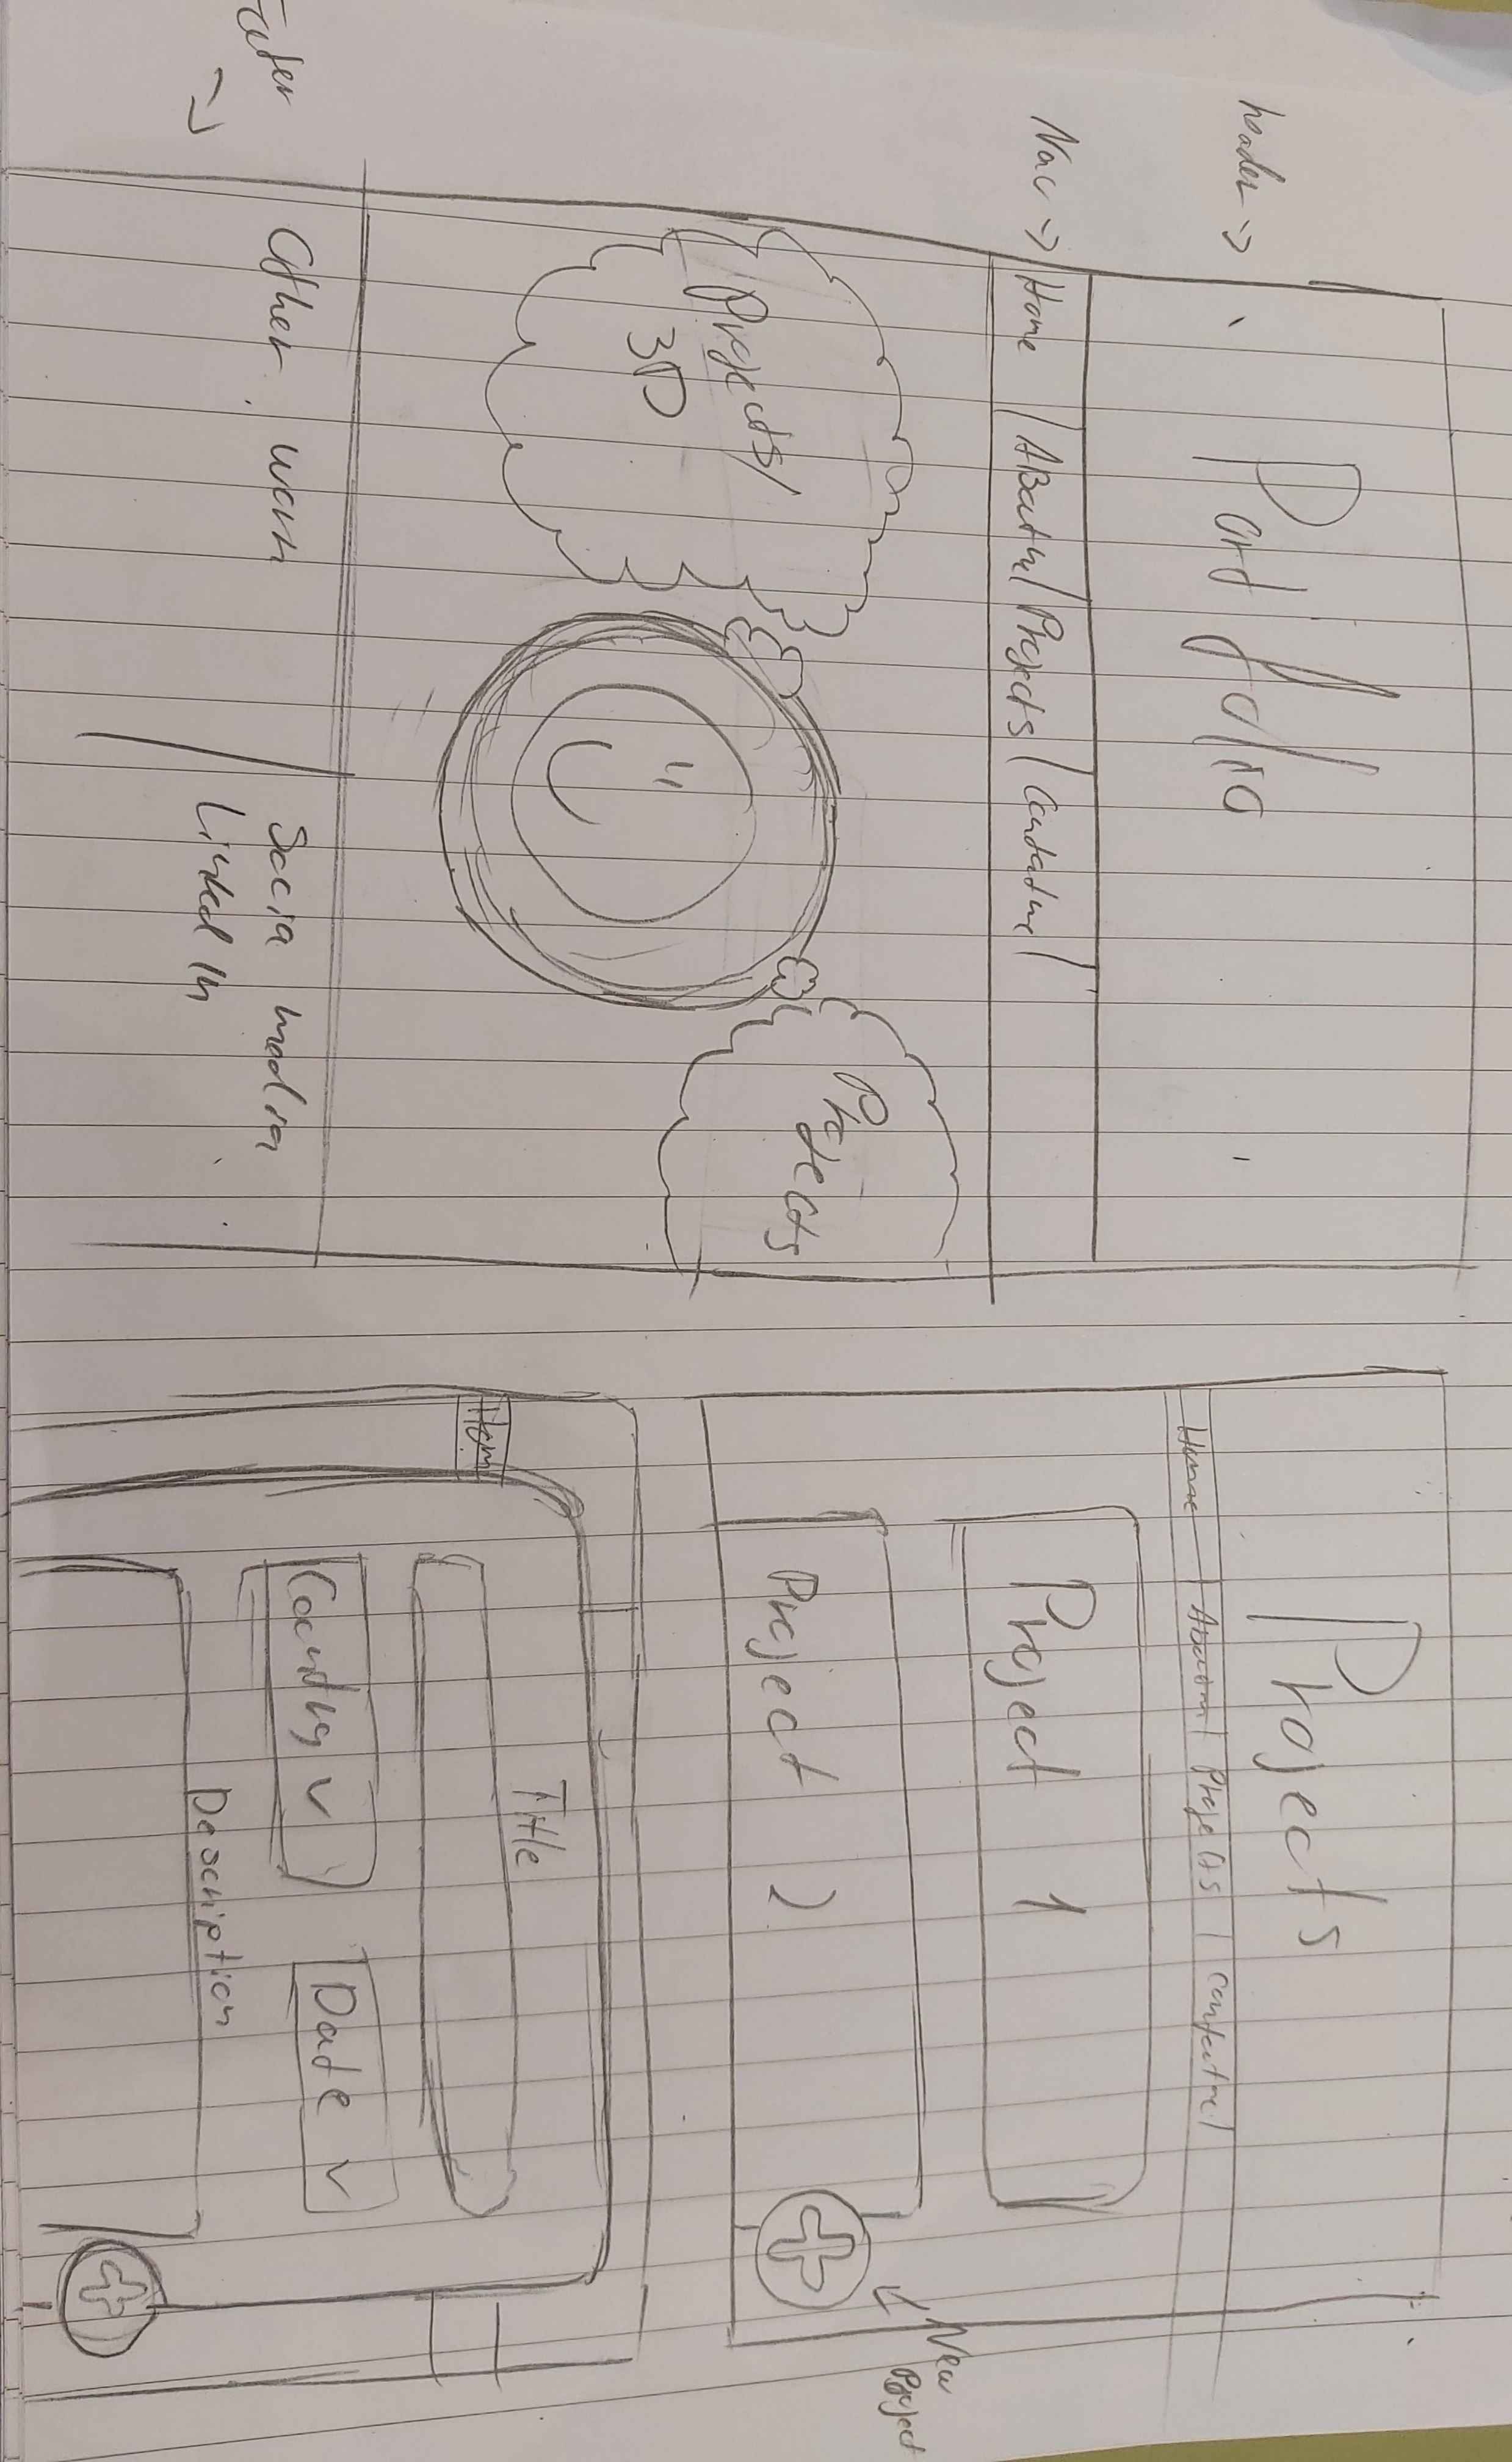 header ->
Portfolio
Nav ->
Home | About me | Projects | Contact me |
Projects/
3D
Projects
Other work
Social media
Linked In
Projects
Home | About me | Projects | contact me |
Project 1
Project 2
New
Project
Hom
Title
Country
Date
Description